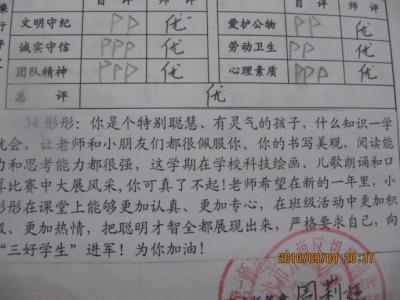 自评 师评 自评 师评
文明守纪 PP 优 爱护公物 PP 优
诚实守信 PPP 优 劳动卫生 PPP 优
团队精神 PPP 优 心理素质 PPP 优
总评 优
34 彤彤：你是个特别聪慧、有灵气的孩子，什么知识一学
就会，让老师和小朋友们都很佩服你。你的书写美观，阅读能
力和思考能力都很强，这学期在学校科技绘画、儿歌朗诵和口
算比赛中大展风采，你可真了不起！老师希望在新的一年里，小
彤彤在课堂上能够更加认真、更加专心，在班级活动中更加积
极、更加热情，把聪明才智全都展现出来，严格要求自己，向
“三好学生”进军！为你加油！
2010/09/04 20:37